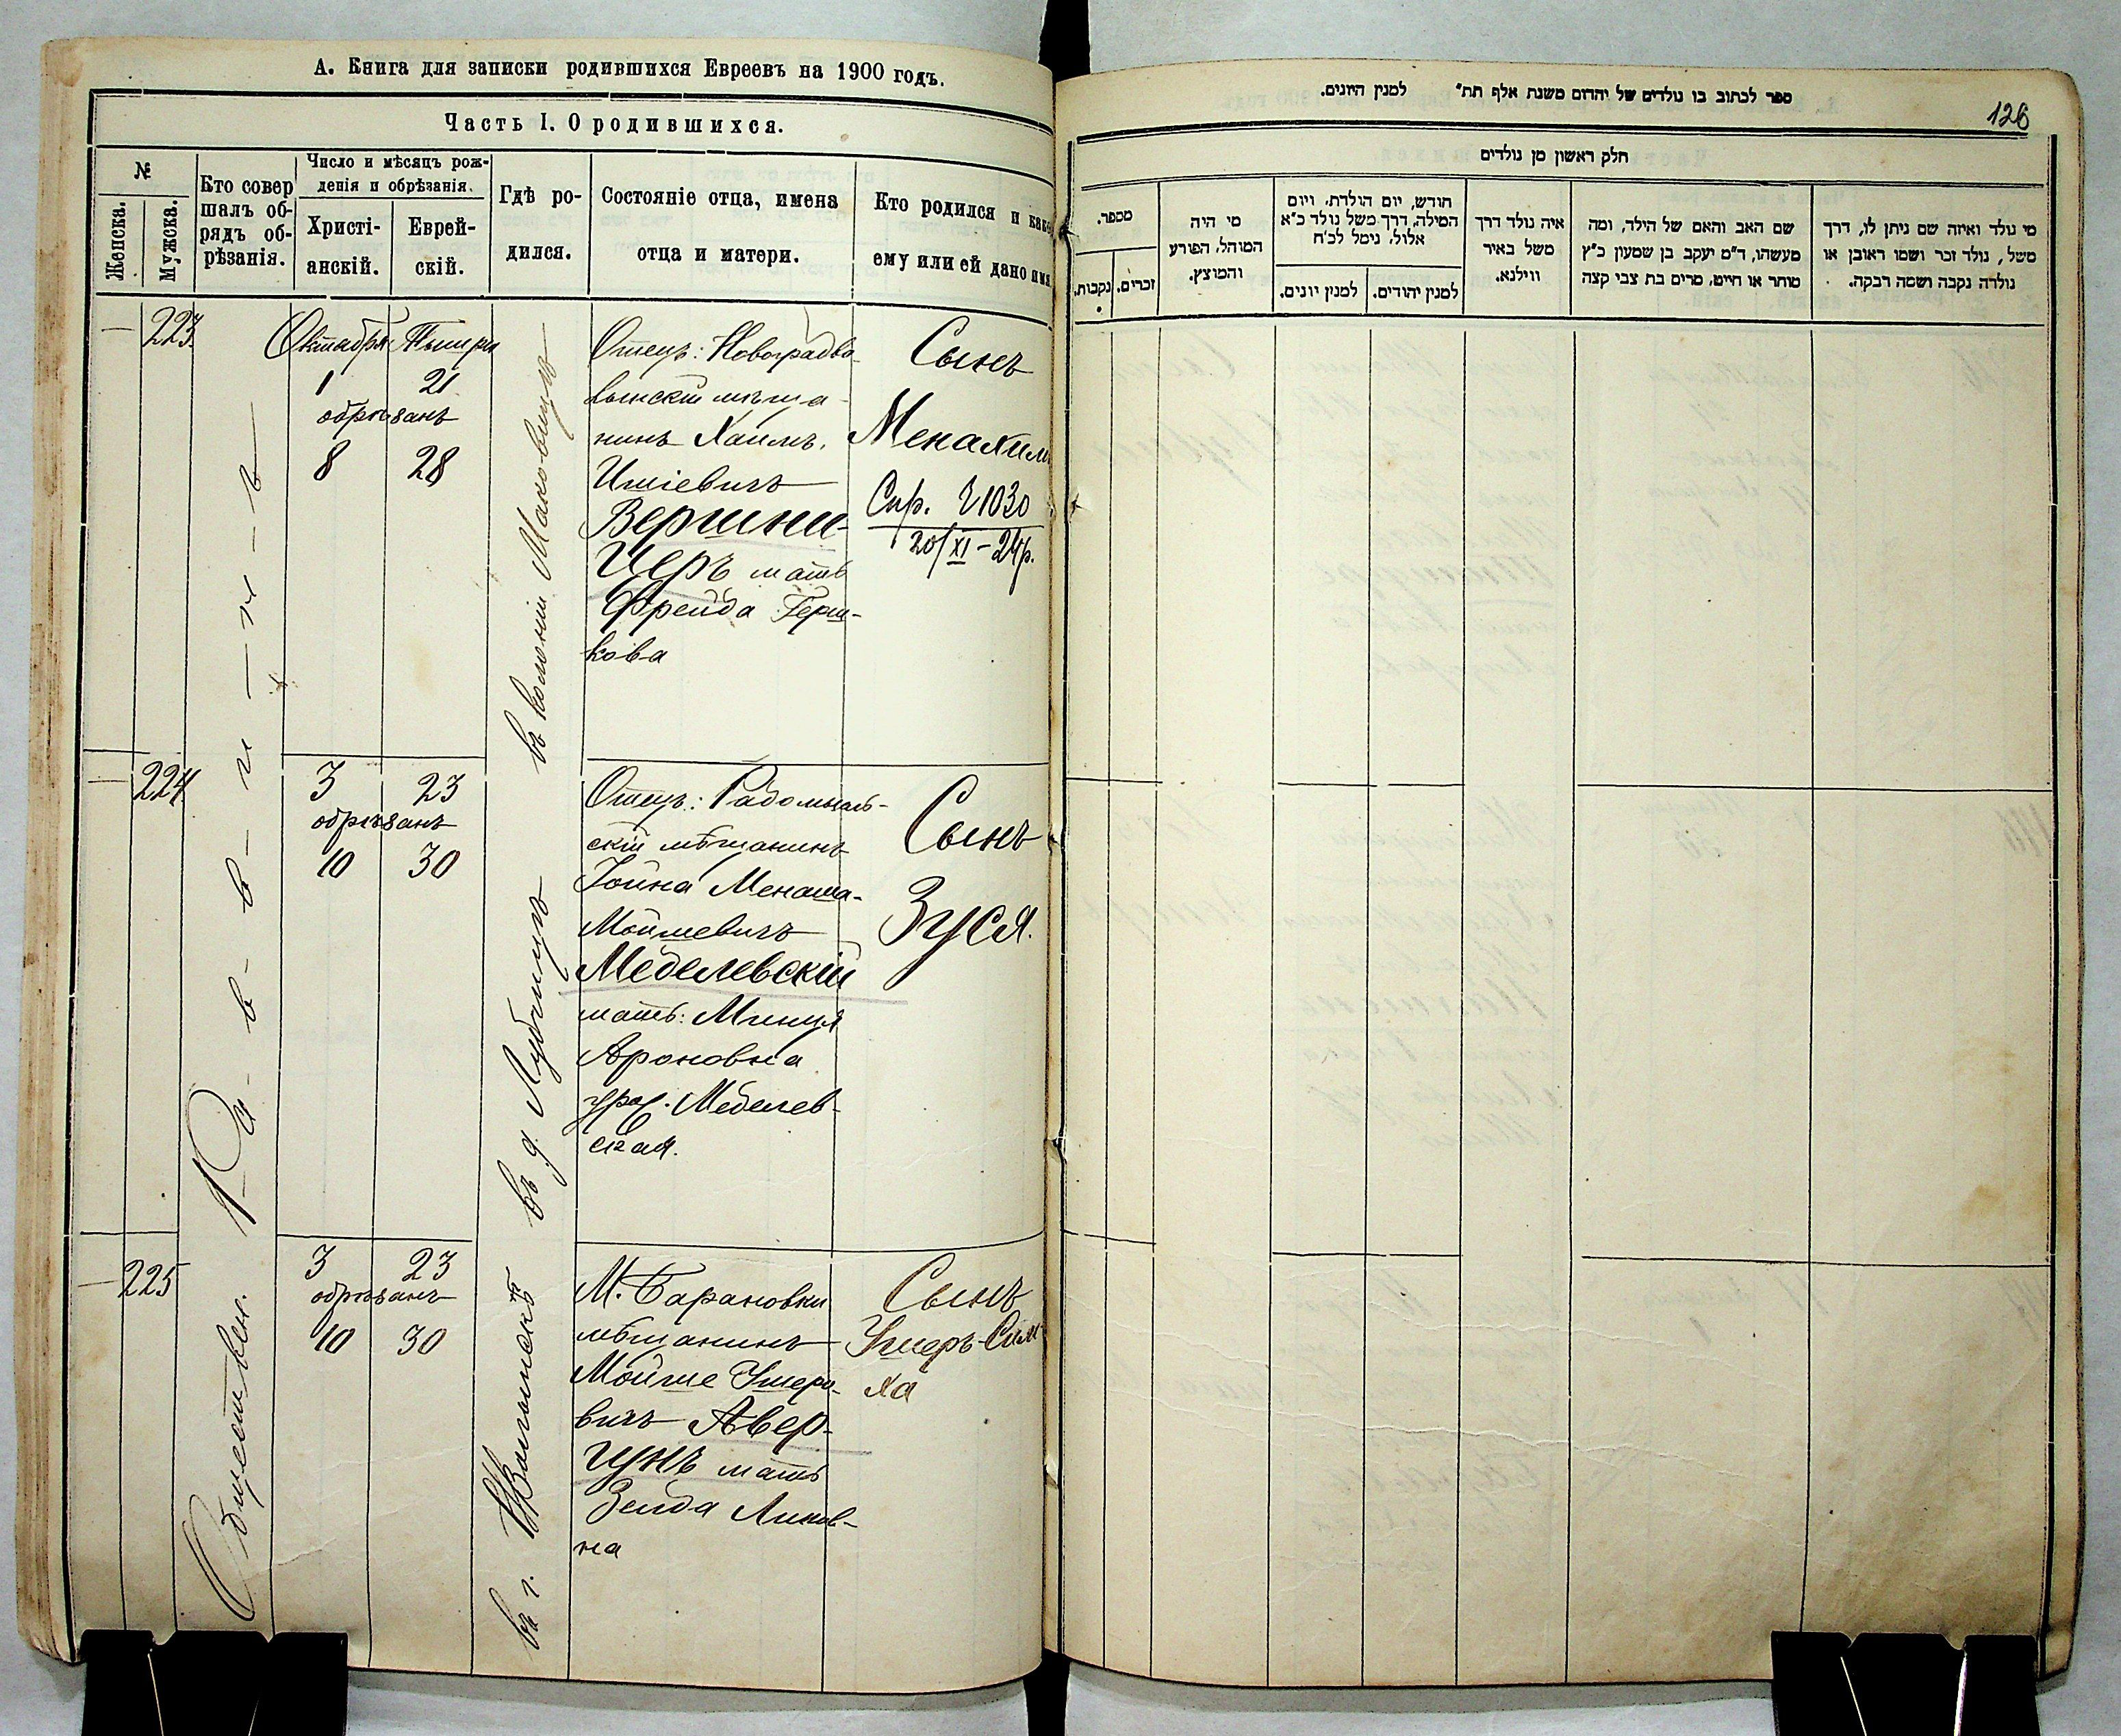 А. Книга для записки родившихся Евреевъ на 1900 годъ.
Часть I. О родившихся.
№
Женска.
Мужска.
Кто совер
шалъ об-
рядъ об-
рѣзанія.
Число и мѣсяцъ рож-
денія и обрѣзанія.
Христі-
анскій.
Еврей-
скій.
Гдѣ ро-
дился.
Состояніе отца, имена
отца и матери.
Кто родился и како
ему или ей дано имя
— 223.
Октября Тишри
1 21
обрѣзанъ
8 28
въ колоніи Маковицъ
Отецъ: Новоградво-
лынскій мѣща-
нинъ Хаимъ
Вершни-
церъ мать
Фрейда Герш-
кова
Сынъ
Менахим
Спр. 21030
20/XI-24р.
— 224
3 23
обрѣзанъ
10 30
въ д.
Отецъ: Радомысль-
скій мѣщанинъ
Іойна Менаша-
Мойшевичъ
Меделевскій
мать: Минця
Ароновна
урож. Меделев-
ская.
Сынъ
Зуся.
— 225
3 23
обрѣзанъ
10 30
въ г. Н/Волынскѣ
М. Барановки
мѣщанинъ
Мойше Ушеро-
вичъ Авер-
гунъ мать
Зелда
на
Сынъ
Ушеръ-Сим
ха
Обществен. Раввинъ
ספר לכתוב בו נולדים של יהדום משנת אלף תת״ למנין היונים.
126
חלק ראשון מן נולדים
מספר.
נקבות.
זכרים.
מי היה
המוהל, הפורע
והמוצץ.
חודש, יום הולדת, ויום
המילה, דרך משל נולד כ״א
אלול, נימל לכ״ח
למנין יונים.
למנין יהודים.
איה נולד דרך
משל באיר
ווילנא.
שם האב והאם של הילד, ומה
מעשהו, ד״מ יעקב בן שמעון כ״ץ
סוחר או חייט, מרים בת צבי קצה
מי נולד ואיזה שם ניתן לו, דרך
משל, נולד זכר ושמו ראובן או
נולדה נקבה ושמה רבקה.